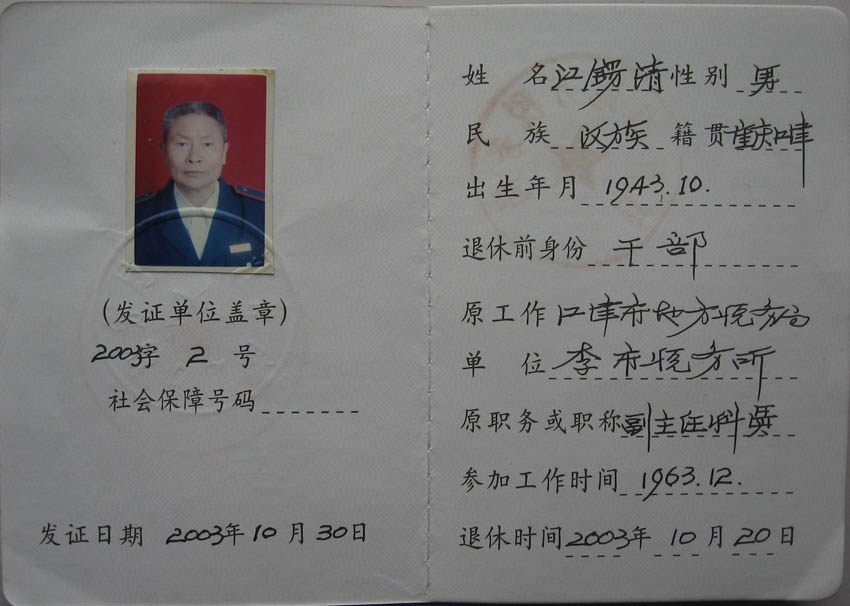 (发证单位盖章)
2003字 2 号
社会保障号码
发证日期 2003年10月30日
姓 名 江锷清 性别 男
民 族 汉族 籍贯 重庆江津
出生年月 1943.10.
退休前身份 干部
原工作 江津市地方税务局
单 位 李市税务所
原职务或职称 副主任科员
参加工作时间 1963.12.
退休时间 2003年 10 月 20 日